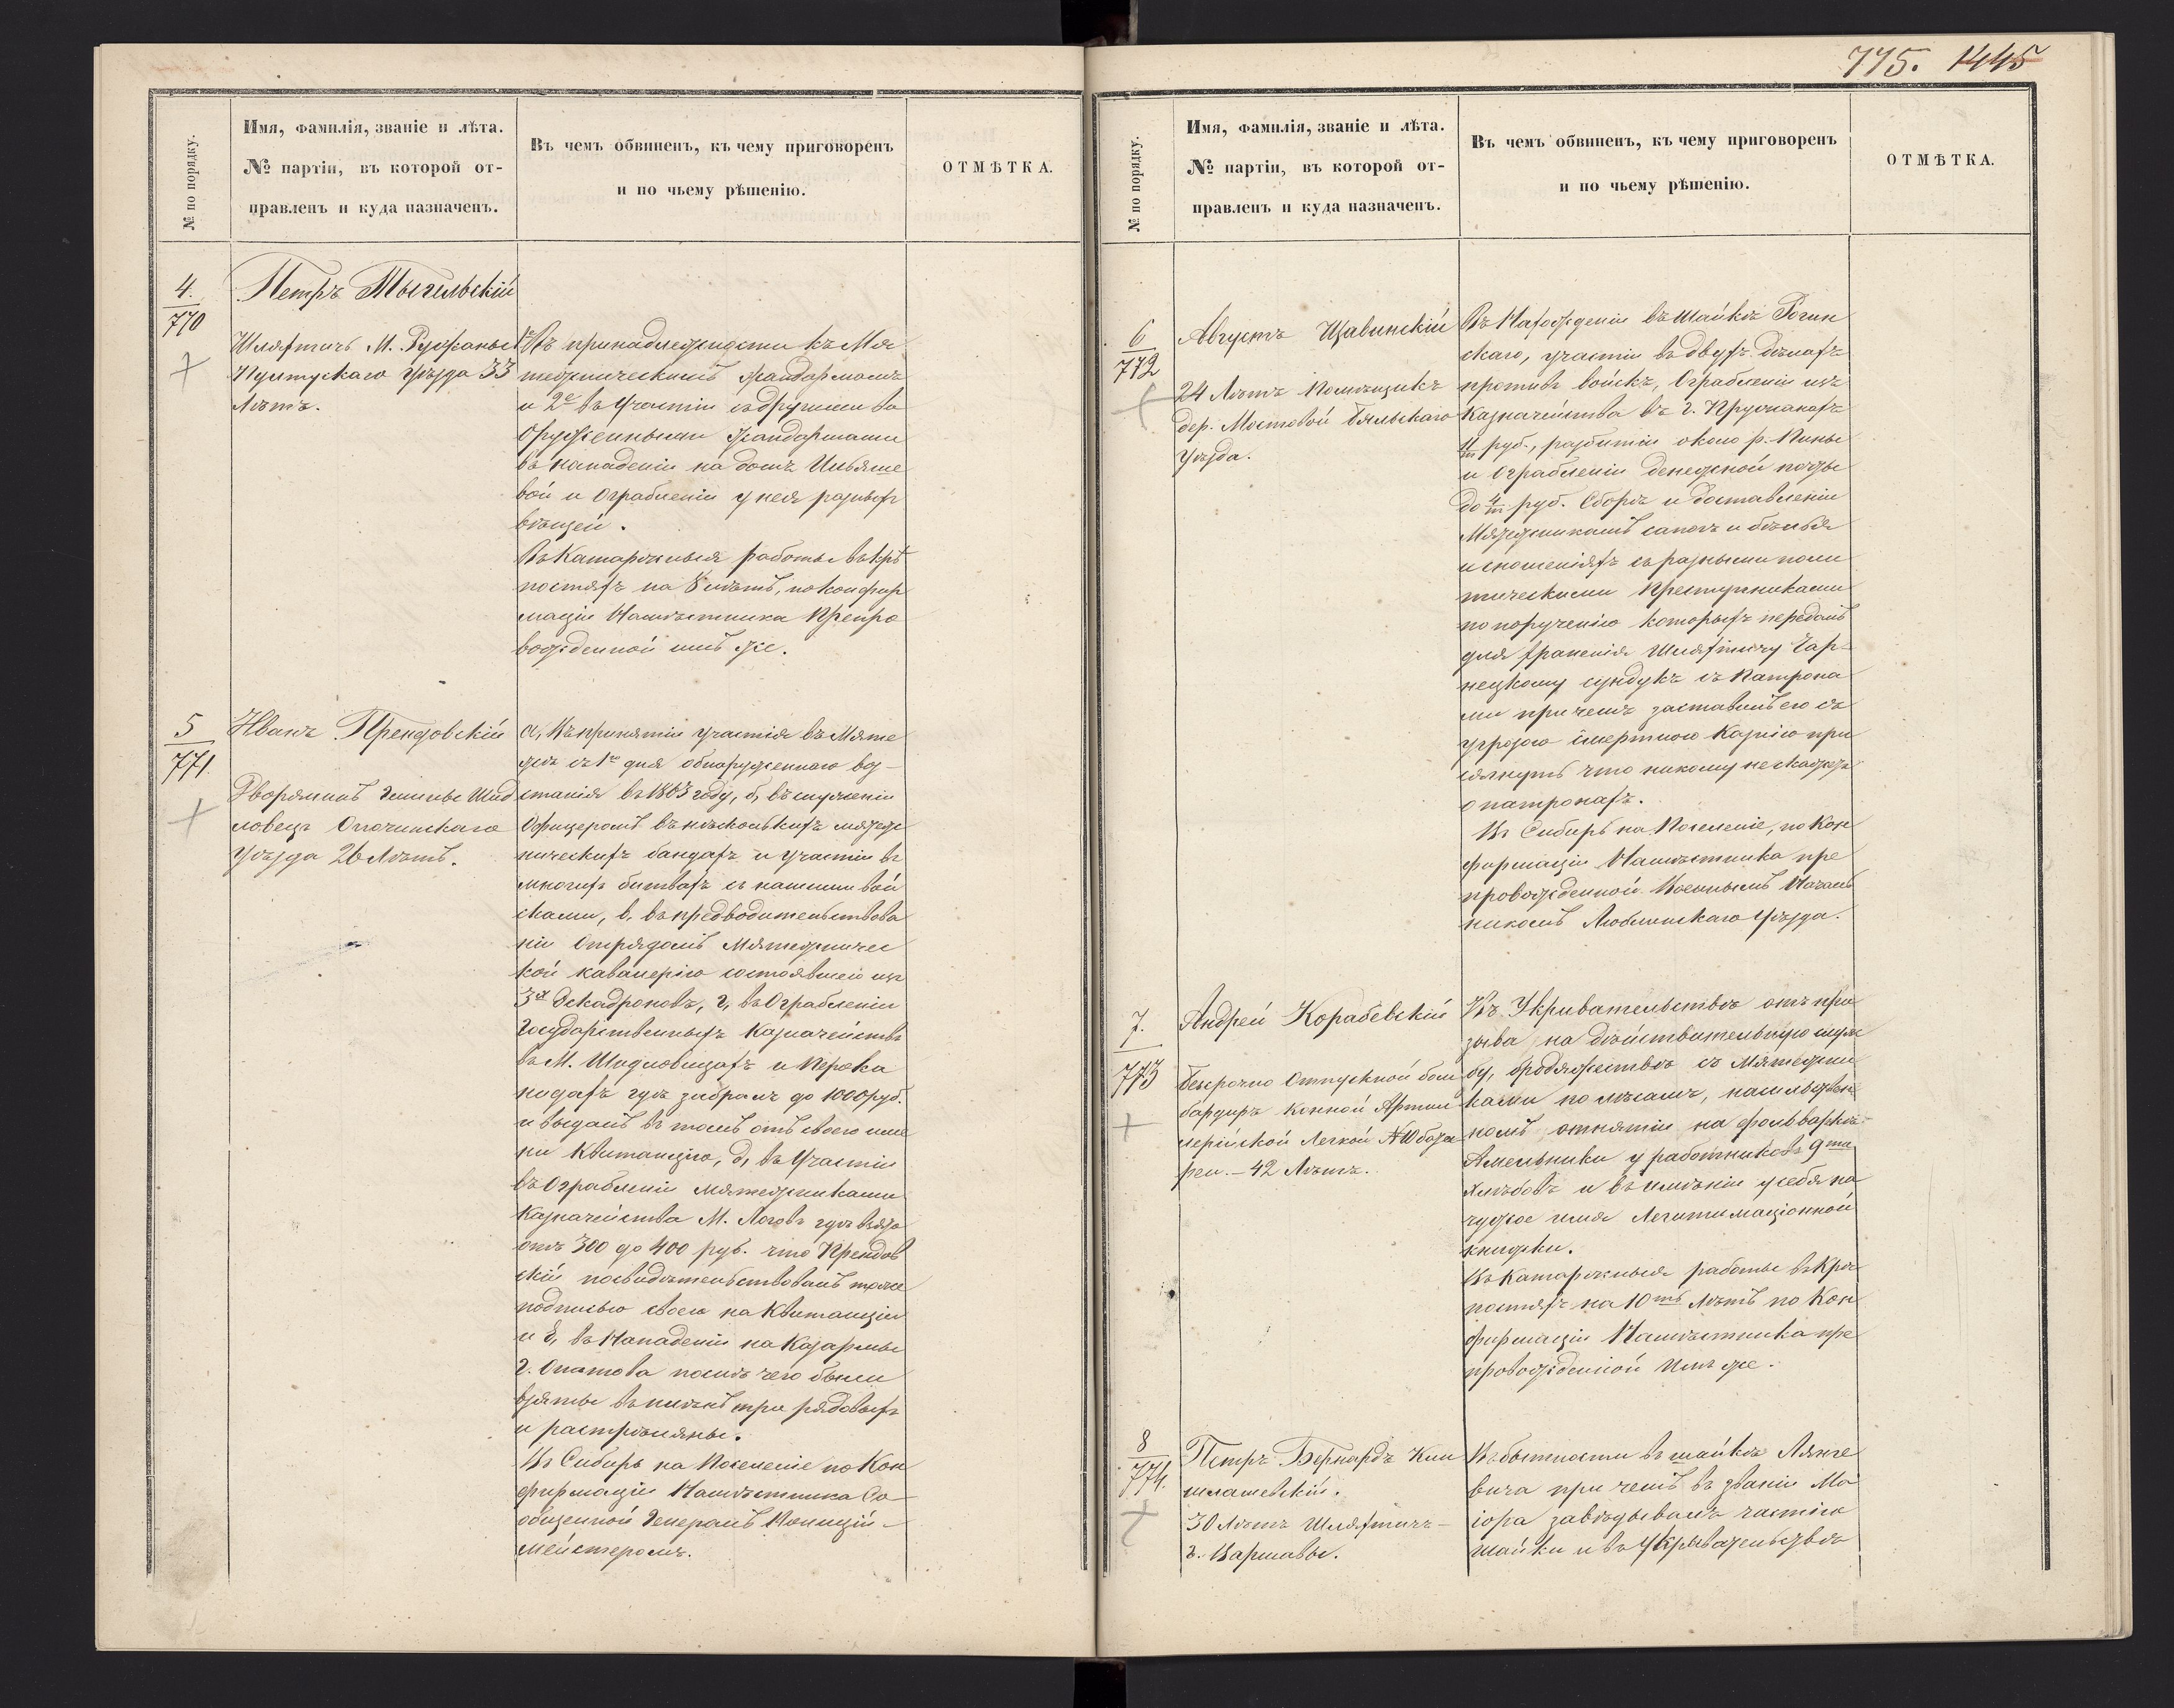 775. 1445
№ по порядку.
Имя, фамилія, званіе и лѣта.
№ партіи, въ которой от-
правленъ и куда назначенъ.
Въ чемъ обвиненъ, къ чему приговоренъ
и по чьему рѣшенію.
ОТМѢТКА.
4.
770
Петръ
Шляхтичъ М.
Пултускаго Уѣзда 33
Лѣтъ.
Въ принадлежности къ Мя
тежническимъ жандармамъ
и 2е въ Участіи съ другими во
оруженными жандармами
въ нападеніи на домъ
вой и Ограбленіи у нея разныхъ
вѣщей.
Въ Каторжныя работы въ крѣ
постяхъ на 8 лѣтъ, по конфир
маціи Намѣстника Препро
вожденной имъ же.
5
771.
Иванъ Прендовскій
Дворянинъ Гмины Шид
ловецъ Опочинскаго
Уѣзда 26 Лѣтъ.
а, Въ принятіи участія въ Мяте
жѣ съ 1го дня обнаруженнаго воз-
станія въ 1863 году, б, въ служеніи
Офицеромъ въ нѣсколькихъ мятеж
ническихъ бандахъ и участіи въ
многихъ битвахъ съ нашими вой
сками, в, въ предводительствова
ніи Отрядомъ Мятежничес
кой кавалеріи состоявшей изъ
3х Эскадроновъ, г, въ Ограбленіи
Государственныхъ Казначействъ
въ М. Шидловицахъ и
гдѣ забралъ до 1000 руб.
и выдалъ въ томъ отъ своего име
ни Квитанцію, д, въ Участіи
въ Ограбленіи мятежниками
Казначейства М. гдѣ взято
отъ 300 до 400 руб. что Прендов
скій посвидѣтельствовалъ тоже
подписью своею на Квитанціи
и Е, въ Нападеніи на Казармы
г. Опатова послѣ чего были
взяты въ плѣнъ три рядовыхъ
и растрѣляны.
Въ Сибирь на Поселеніе по Кон
фирмаціи Намѣстника Со
общенной Генералъ Полицій-
мейстеромъ.
№ по порядку.
Имя, фамилія, званіе и лѣта.
№ партіи, въ которой от-
правленъ и куда назначенъ.
Въ чемъ обвиненъ, къ чему приговоренъ
и по чьему рѣшенію.
ОТМѢТКА.
6
772
Августъ Щавинскій
24 Лѣтъ Помѣщикъ
дер. Мостовой Бяльскаго
Уѣзда.
Въ Нахожденіи въ Шайкѣ Рогин
скаго, участіи въ двухъ дѣлахъ
противъ войскъ, Ограбленіи изъ
Казначейства въ г. Пружанахъ
руб., разбитіи около р. Пины
и Ограбленіи денежной почты
до 4/m руб. Сборѣ и доставленіи
Мятежникамъ сапогъ и бѣлья
и сношеніяхъ съ разными поли
тическими Преступниками
по порученію которыхъ передалъ
для храненія Шляхтичу Чар-
нецкому сундукъ съ патрона
ми при чемъ заставилъ его съ
угрозою смертною Казнію при
сягнуть что никому не скажетъ
о патронахъ.
Въ Сибирь на Поселеніе, по Кон
фирмаціи Намѣстника пре
провожденной Военнымъ Началь
никомъ Люблинскаго Уѣзда.
7.
773
Андрей Корабевскій
Безсрочно Отпускной бом
бардиръ Конной Артил
лерійской Легкой № 10 бата
реи. — 42 Лѣтъ.
Въ Укривательствѣ отъ при
зыва на дѣйствительную служ
бу, бродяжествѣ съ Мятежни
ками по лѣсамъ, насильствен
номъ отнятіи на фольваркѣ
у работниковъ 9ти
хлѣбовъ и въ имѣніи у себя на
чужое имя Легитимаціонной
книжки.
Въ Каторжныя работы въ Крѣ
постяхъ на 10ть Лѣтъ по Кон
фирмаціи Намѣстника пре
провожденной Имъ же.
8
774.
Петръ Бернардъ
30 Лѣтъ Шляхтичъ —
г. Варшавы.
Въ бытности въ шайкѣ Лянге
вича при чемъ въ званіи Ма
іора завѣдывалъ частію
шайки и въ Укрывательствѣ